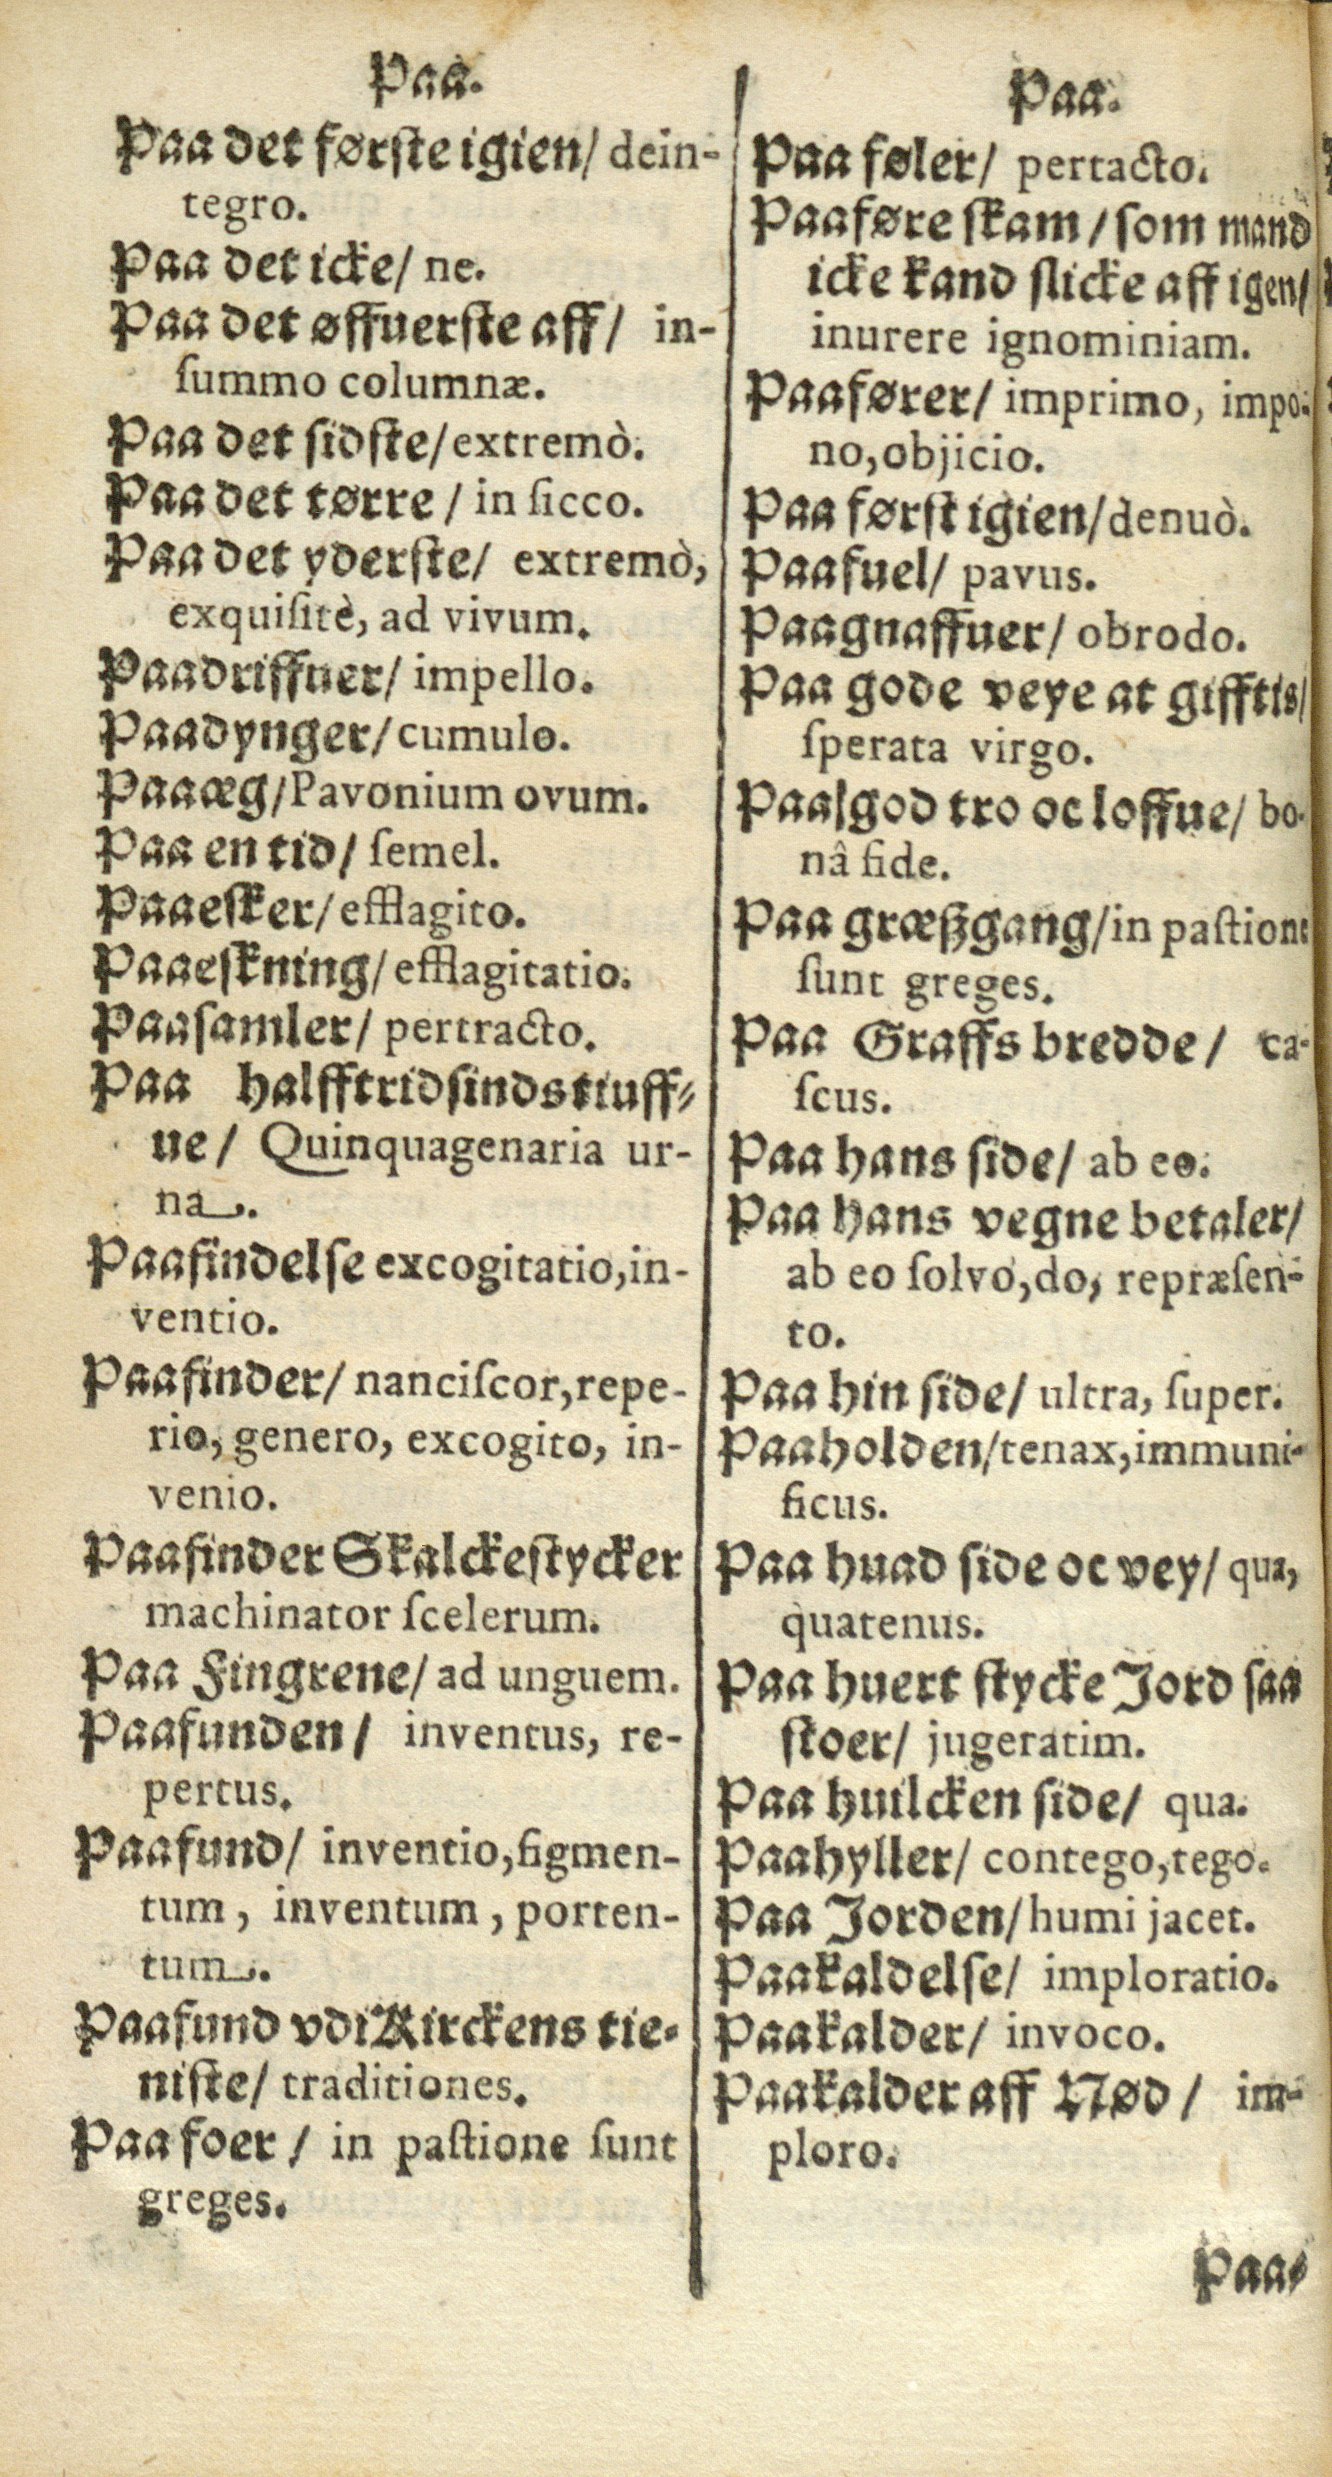 Paa.
Paa det første igien/ dein-
tegro.
Paa det icke/ ne.
Paa det øffuerste aff/ in-
ſummo columnæ.
Paa det ſidſte/ extremò.
Paa det tørre / in ſicco.
Paa det yderſte/ extremò,
exquiſitè, ad vivum.
Paadriffuer/ impello.
Paadynger/ cumulo.
Paaæg/Pavonium ovum.
Paa en tid/ ſemel.
Paaeſker/ efflagito.
Paaeſkning/ efflagitatio.
Paaſamler/ pertracto.
Paa halfftridſindstiuff-
ue/ Quinquagenaria ur-
na.
Paafindelſe excogitatio,in-
ventio.
Paafinder/ nanciſcor,repe-
rio, genero, excogito, in-
venio.
Paafinder Skalckeſtycker
machinator ſcelerum.
Paa Fingrene/ ad unguem.
Paafunden/ inventus, re-
pertus.
Paafund/ inventio,figmen-
tum, inventum, porten-
tum.
Paafund vdi Kirckens tie-
niſte/ traditiones.
Paa foer/ in paſtione ſunt
greges.
Paa.
Paa føler/ pertacto.
Paaføre ſkam/ ſom mand
icke kand ſlicke aff igen/
inurere ignominiam.
Paafører/ imprimo, impo-
no,objicio.
Paa førſt igien/denuò.
Paafuel/ pavus.
Paagnaffuer/ obrodo.
Paa gode veye at gifftis/
ſperata virgo.
Paa god tro oc loffue/ bo-
nâ fide.
Paa græßgang/in paſtione
ſunt greges.
Paa Graffs bredde/ ca-
ſcus.
Paa hans ſide/ ab eo.
Paa hans vegne betaler/
ab eo ſolvo,do, repræſen-
to.
Paa hin ſide/ ultra, ſuper.
Paaholden/tenax,immuni-
ficus.
Paa huad ſide oc vey/ qua,
quatenus.
Paa huert ſtycke Jord ſaa
ſtoer/ jugeratim.
Paa huilcken ſide/ qua.
Paahyller/ contego,tego.
Paa Jorden/humi jacet.
Paakaldelſe/ imploratio.
Paakalder/ invoco.
Paakalder aff Nød/ im-
ploro.
Paa-